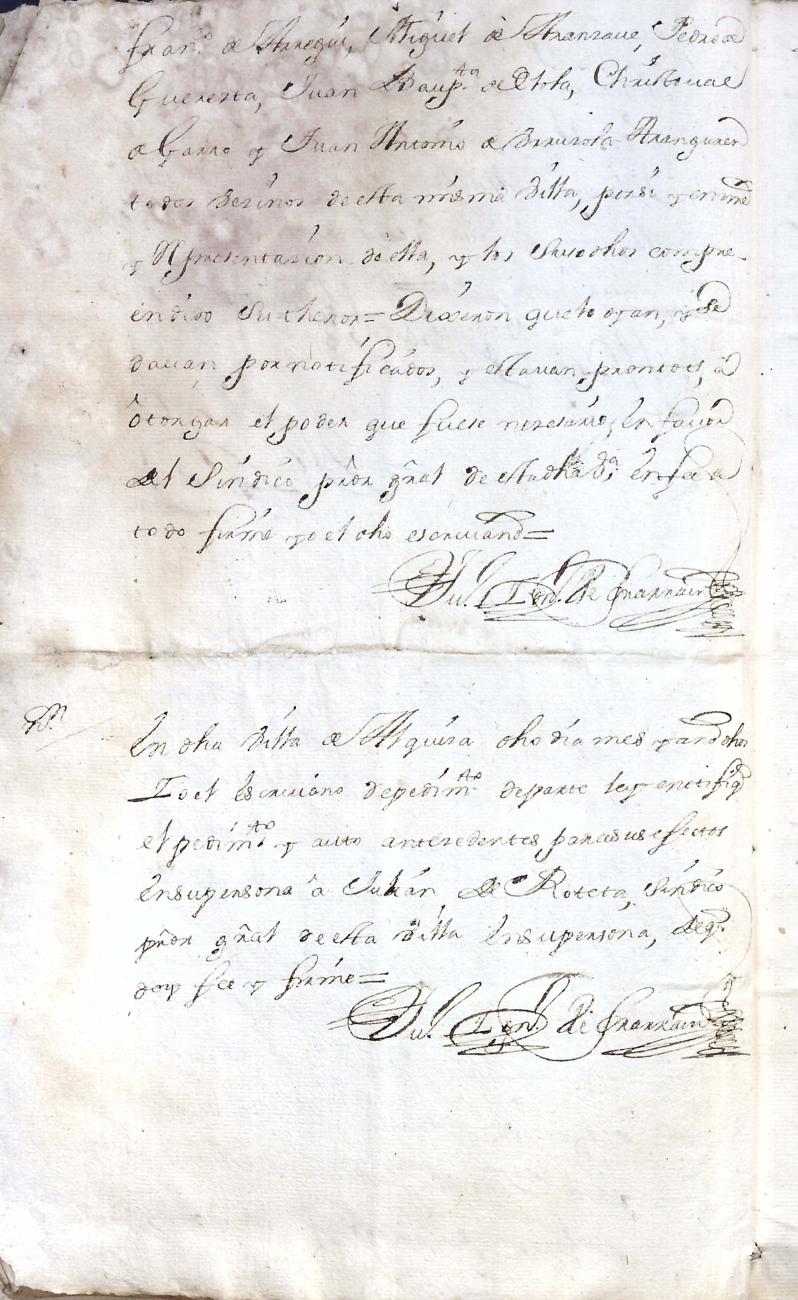 Fran.co de Arregui, Miguel de Aranzave, Pedro de
Guereta, Juan Baup.ta de Olola, Christoual
de Garro y Juan Antonio de Bruzola Aranguren
todos vezinos de esta misma Villa, por si y en nre
y Representazion de ella, y los Susodhos compre-
endivo Su thenor= Dixeron que lo oyan, y se
dauan por notificados, y estauan prontos, â
ôtorgar el poder que fuese nezesario, en fauor
del Sindico prôr gñal de esta dha Va; en fee a
todo firme yo el dho escriuano=
Ju.o Ign.o de Gnarrain
Nn
En dha Villa de Alquiza dho dia mes y año dhos
Yo el Escriuano de pedim.to de parte ley e notifiq
el pedim.to y auto antezedentes para sus efectos
En su persona â Julian de Roteta, Sindico
prôr gñal de esta Villa en su persona, de q.
doy fee y firme=
Ju.o Ign.o de Gnarrain